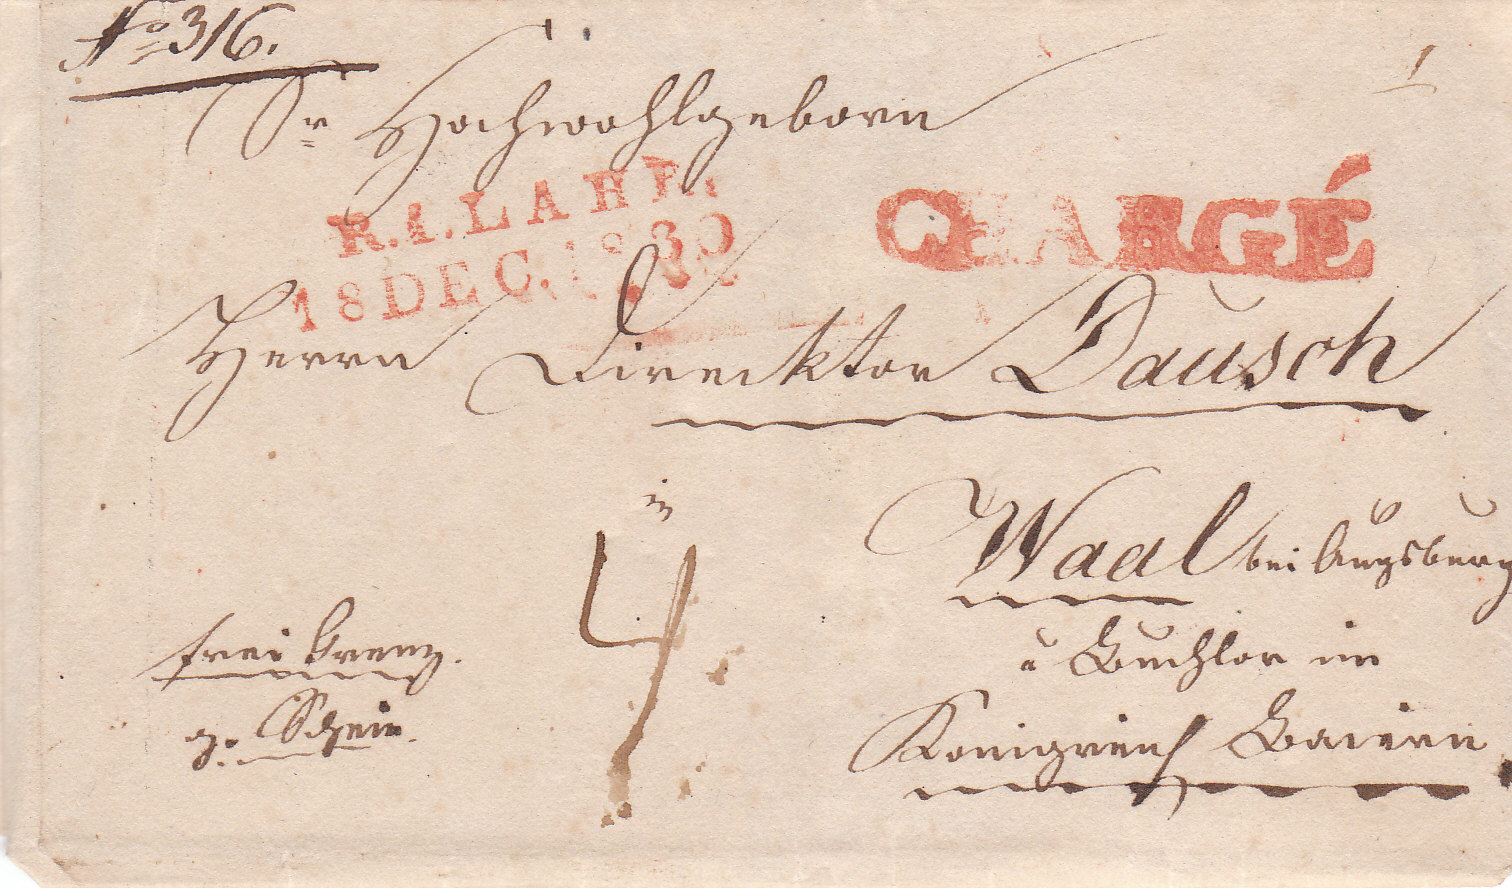 No 316.
Sr Hochwohlgeborn
R.1.LAHR.
18 DEC. 1830
CHARGÉ
Herrn Direcktor Dausch
in
Waal bei Augsburg
u Buchlor im
Königreich Baiern
frei Grenz.
g. Schein.
4
1